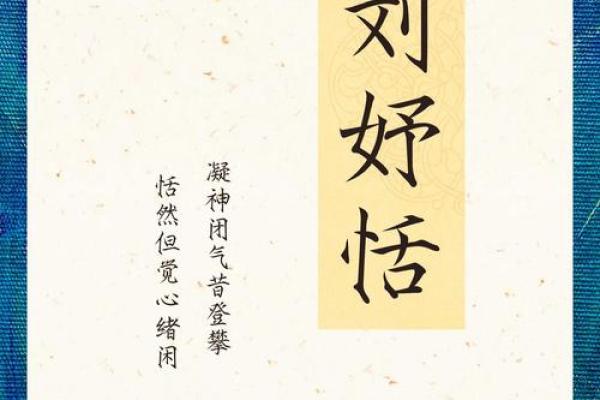 刘妤恬
凝神闭气昔登攀
恬然但觉心绪闲